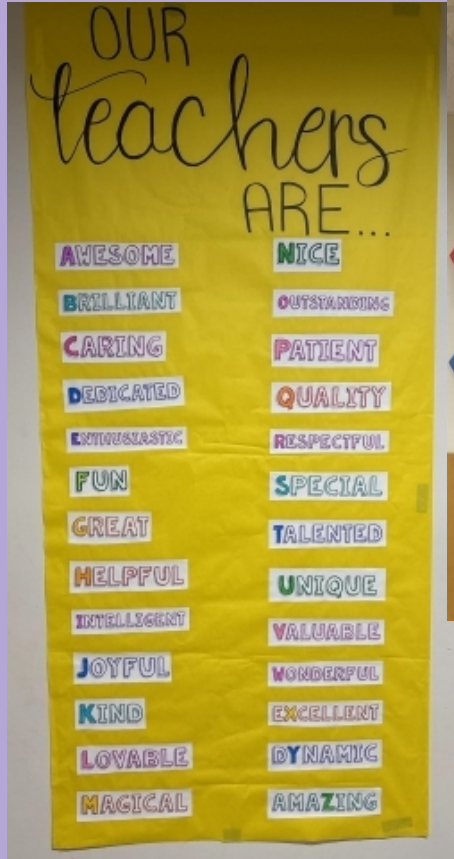 OUR
teachers
ARE...
AWESOME
BRILLIANT
CARING
DEDICATED
ENTHUSIASTIC
FUN
GREAT
HELPFUL
INTELLIGENT
JOYFUL
KIND
LOVABLE
MAGICAL
NICE
OUTSTANDING
PATIENT
QUALITY
RESPECTFUL
SPECIAL
TALENTED
UNIQUE
VALUABLE
WONDERFUL
EXCELLENT
DYNAMIC
AMAZING